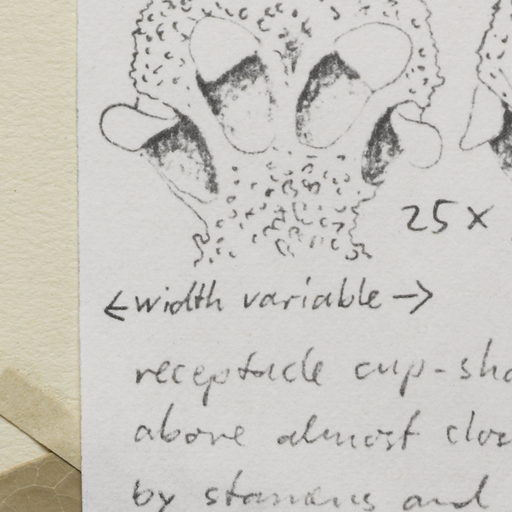 25 x
← width variable →
receptacle cup-sha
above almost clos
by stamens and